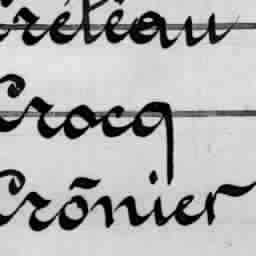 Créteau
Crocq
Crõnier